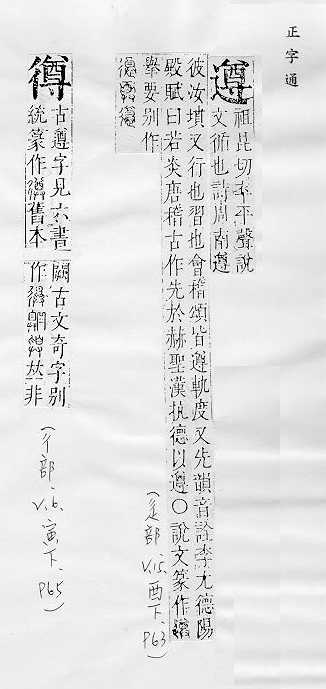 正字通
遵
祖昆切平聲說
文循也詩周南遵
彼汝墳又行也習也會稽頌皆遵軌度又先韻音詮李尤德陽
殿賦曰若炎唐稽古作先於赫聖漢抗德以遵〇說文篆作
舉要别作
(辵部, V.15, 酉下, P63)
古遵字見六書
統篆作舊本
闕古文奇字别
作𠀤非
(彳部, V.6. 寅下, P65)